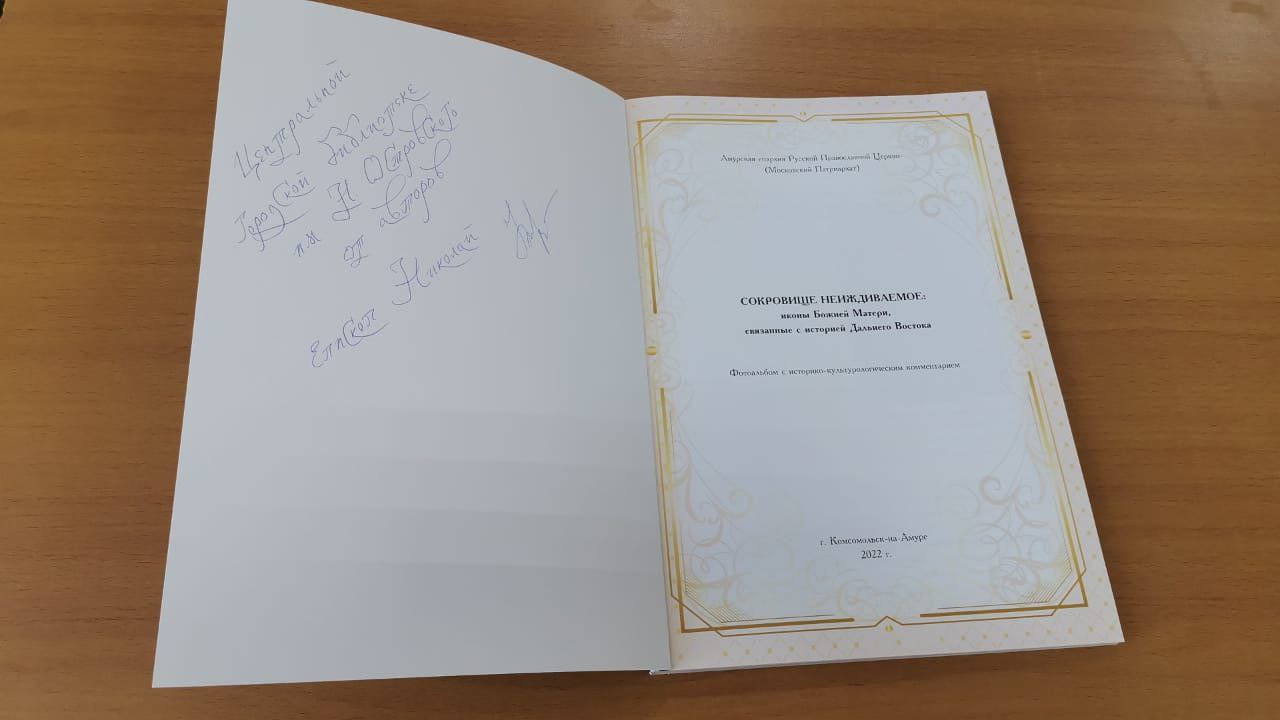 Центральной
Городской Библиотеке
им Н Островского
от авторов
епископ Николай
Амурская епархия Русской Православной Церкви
(Московский Патриархат)
СОКРОВИЩЕ НЕИЖДИВАЕМОЕ:
иконы Божией Матери,
связанные с историей Дальнего Востока
Фотоальбом с историко-культурологическим комментарием
г. Комсомольск-на-Амуре
2022 г.